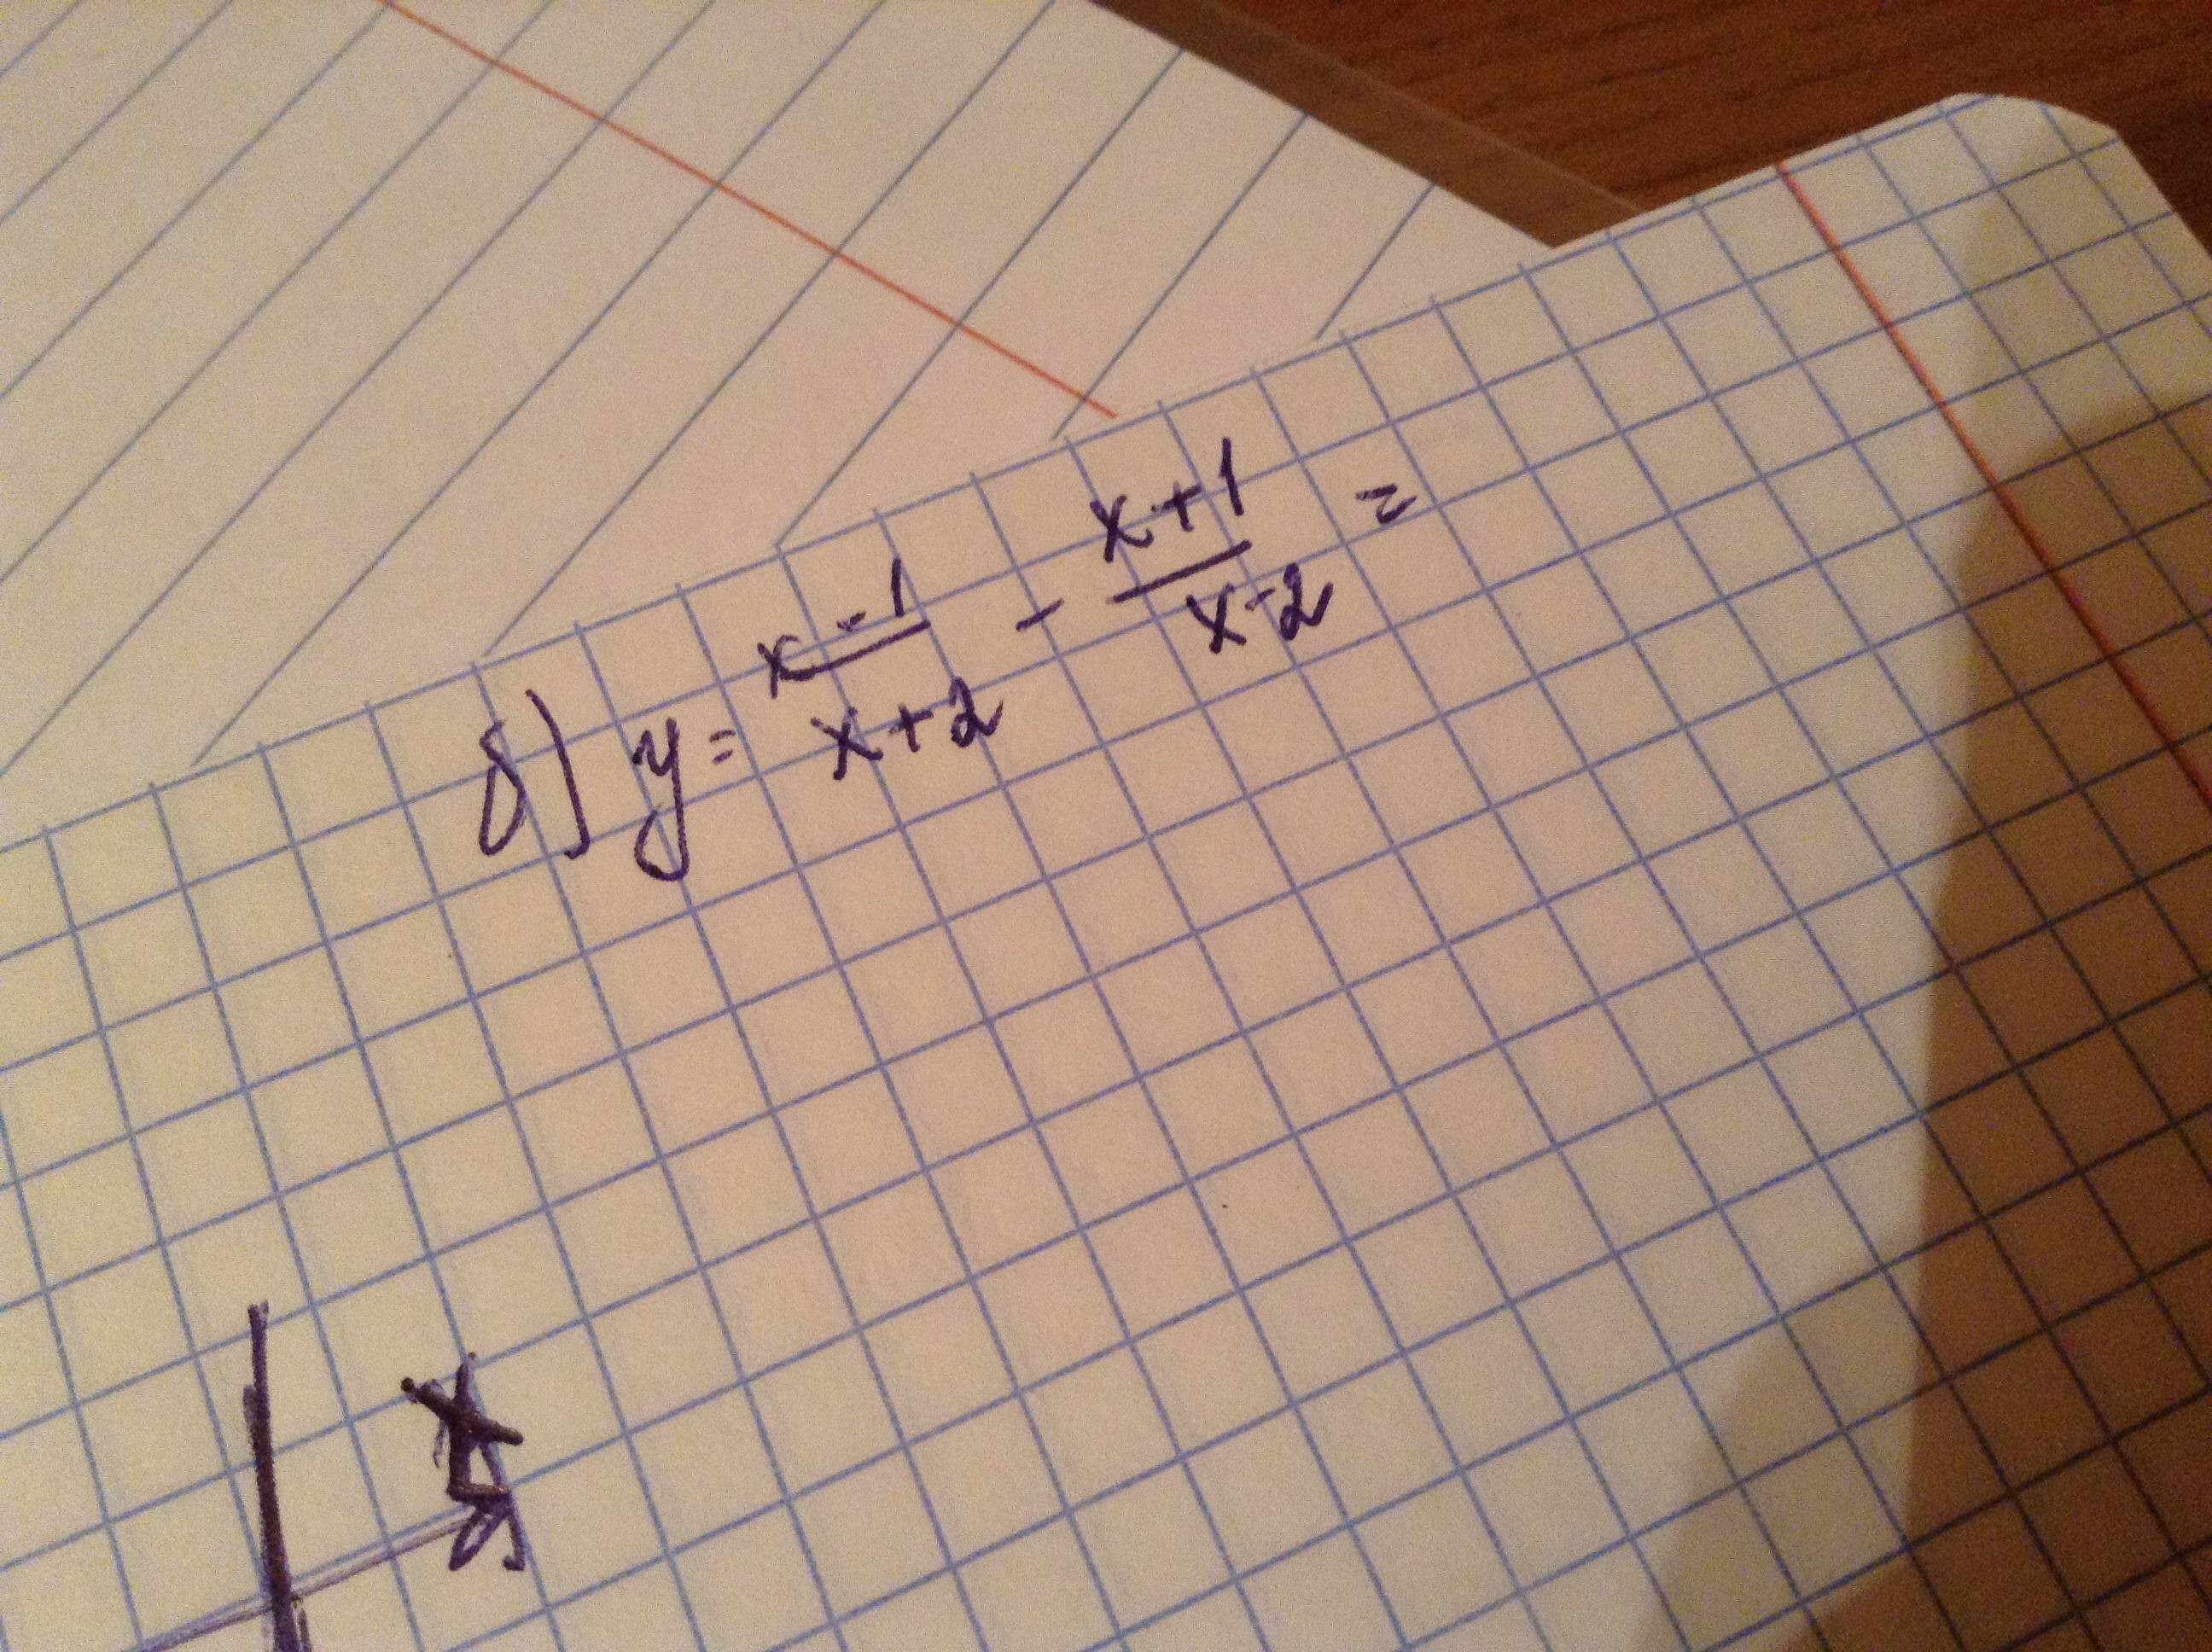 б) y = x-1/x+2 - x+1/x-2 =